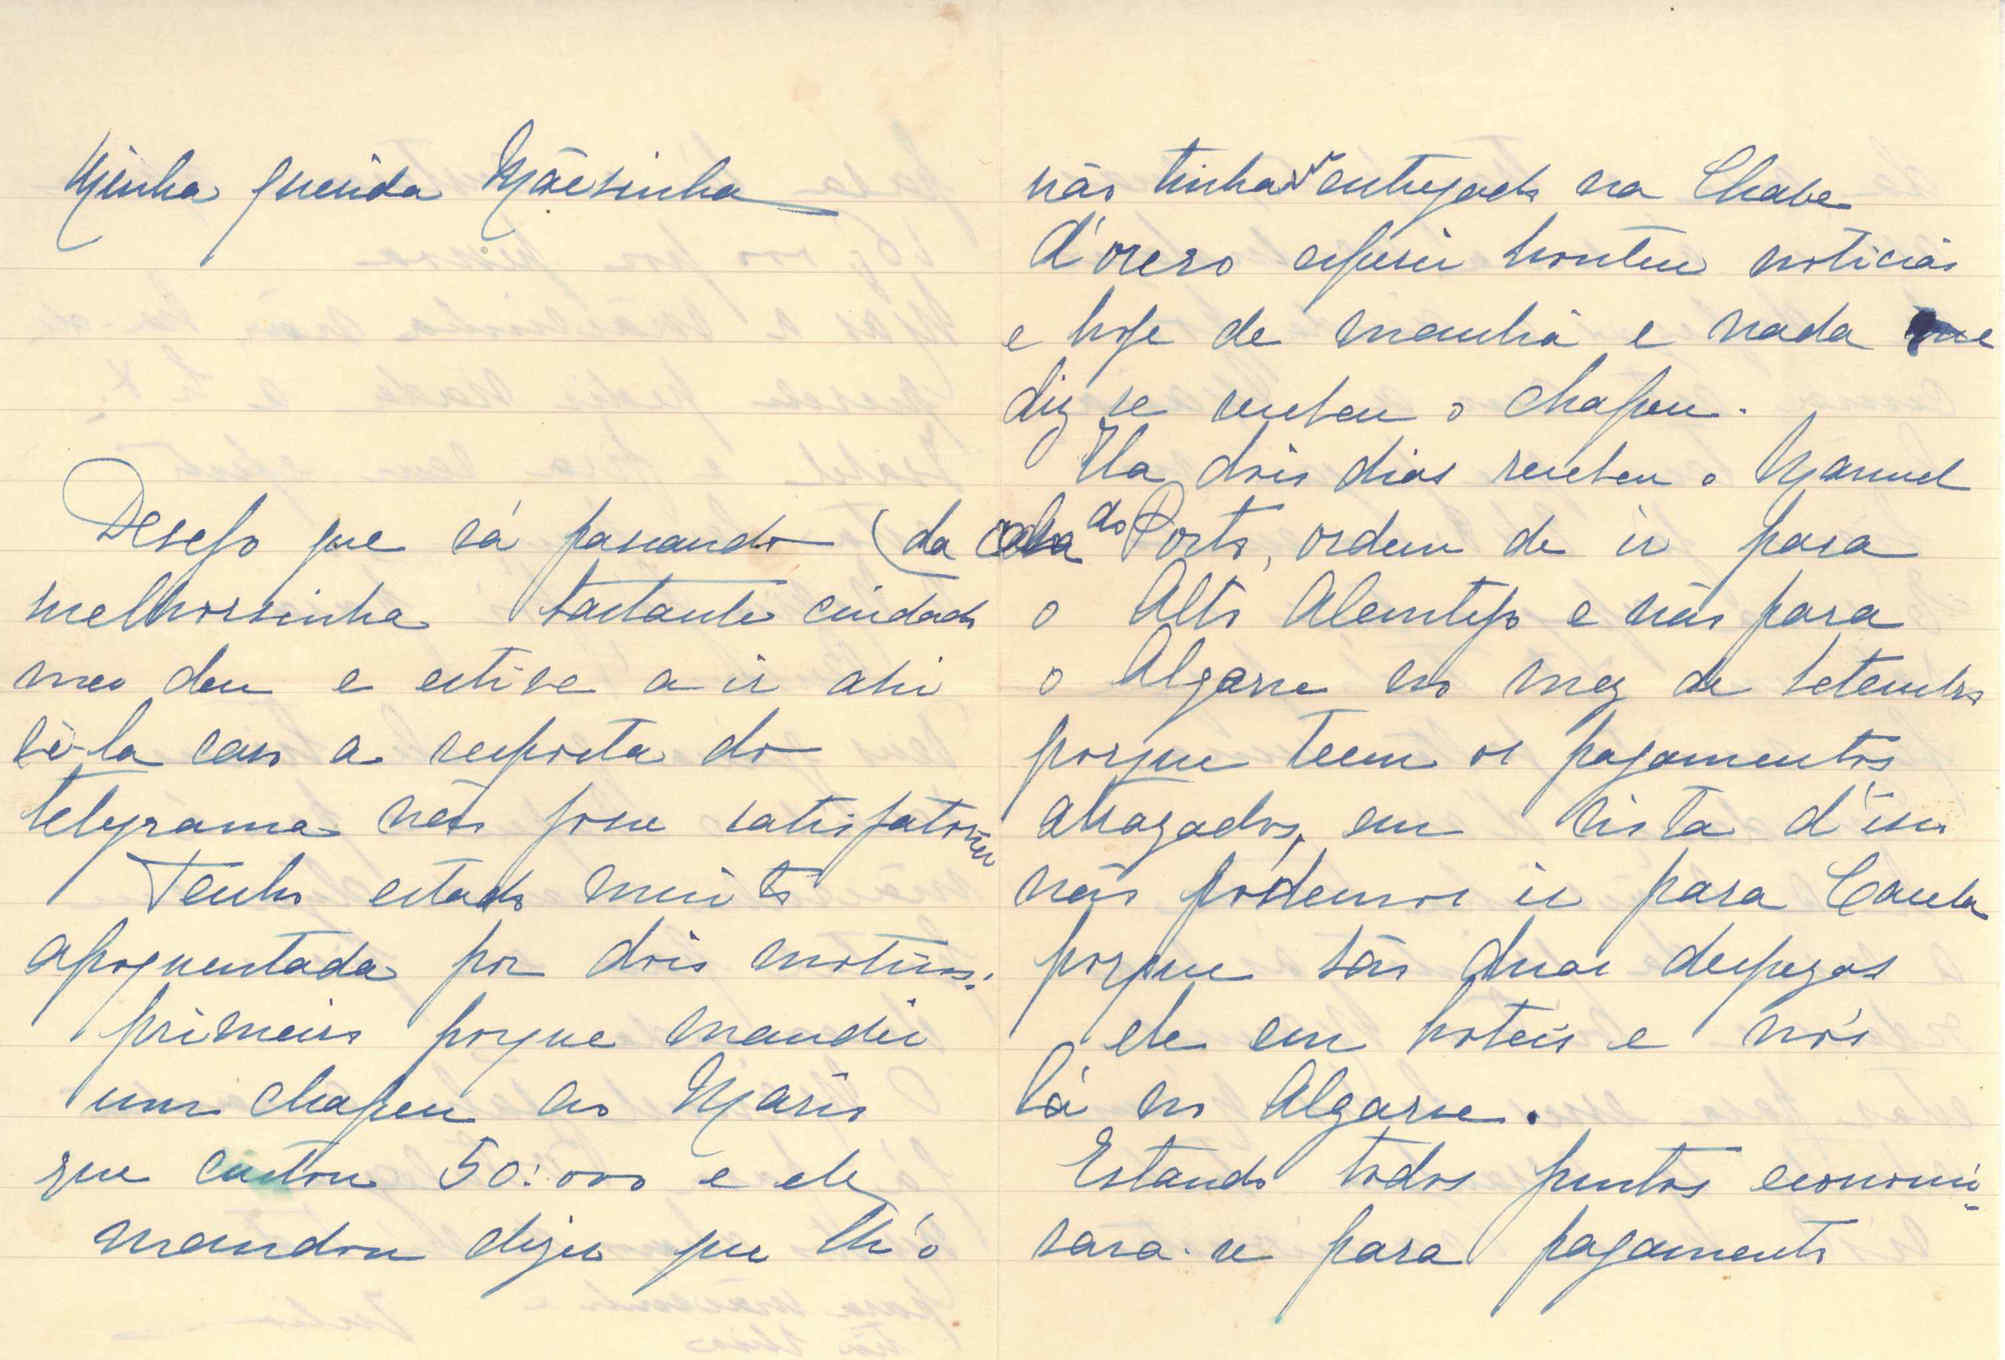 Minha querida Mãesinha
Desejo que vá passando
melhorsinha bastante cuidado
me deu e estive a ir ahi
vê-la caso a resposta do
telegrama não fosse satisfatoria
Tenho estado muito
apoquentada por dois motivos:
primeiro porque mandei
um chapeu ao Mario
que custou 50:000 e ele
mandou dizer que lh'o
não tinham entregado na Chave
d'ouro esperei hontem noticias
e hoje de manhã e nada me
diz se recebeu o chapeu.
Ha dois dias recebeu o Manuel
(da do Porto, ordem de ir para
o Alto Alemtejo e não para
o Algarve no mez de Setembro
porque teem os pagamentos
atrazados, em vista d'isso
não podemos ir para Cacela
porque são duas despezas
ele em hoteis e nós
lá no Algarve.
Estando todos juntos economi-
sava-se para pagamento